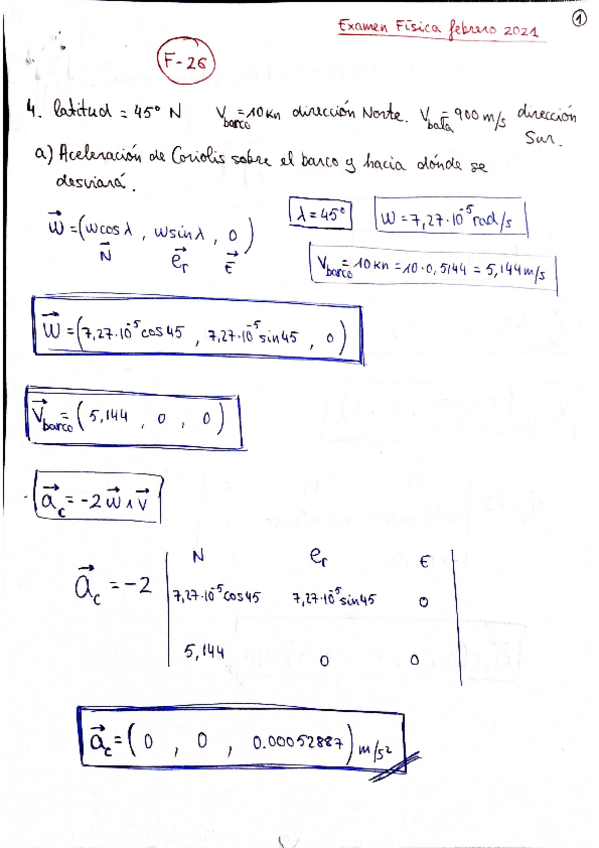 Examen Física febrero 2021
1
F-26
4. latitud = 45° N V barco = 10 kn dirección Norte. V bala = 900 m/s dirección Sur.
a) Aceleración de Coriolis sobre el barco y hacia dónde se
desviará.
W⃗ = (wcosλ, wsinλ, 0)
N⃗ e⃗r E⃗
λ = 45°
W = 7,27·10⁻⁵ rad/s
V barco = 10 kn = 10·0,5144 = 5,144 m/s
W⃗ = (7,27·10⁻⁵ cos45, 7,27·10⁻⁵ sin45, 0)
V⃗ barco = (5,144, 0, 0)
a⃗c = -2 w⃗ ∧ v⃗
N er E
a⃗c = -2 | 7,27·10⁻⁵ cos45 7,27·10⁻⁵ sin45 0 |
5,144 0 0
a⃗c = (0, 0, 0.00052887) m/s²